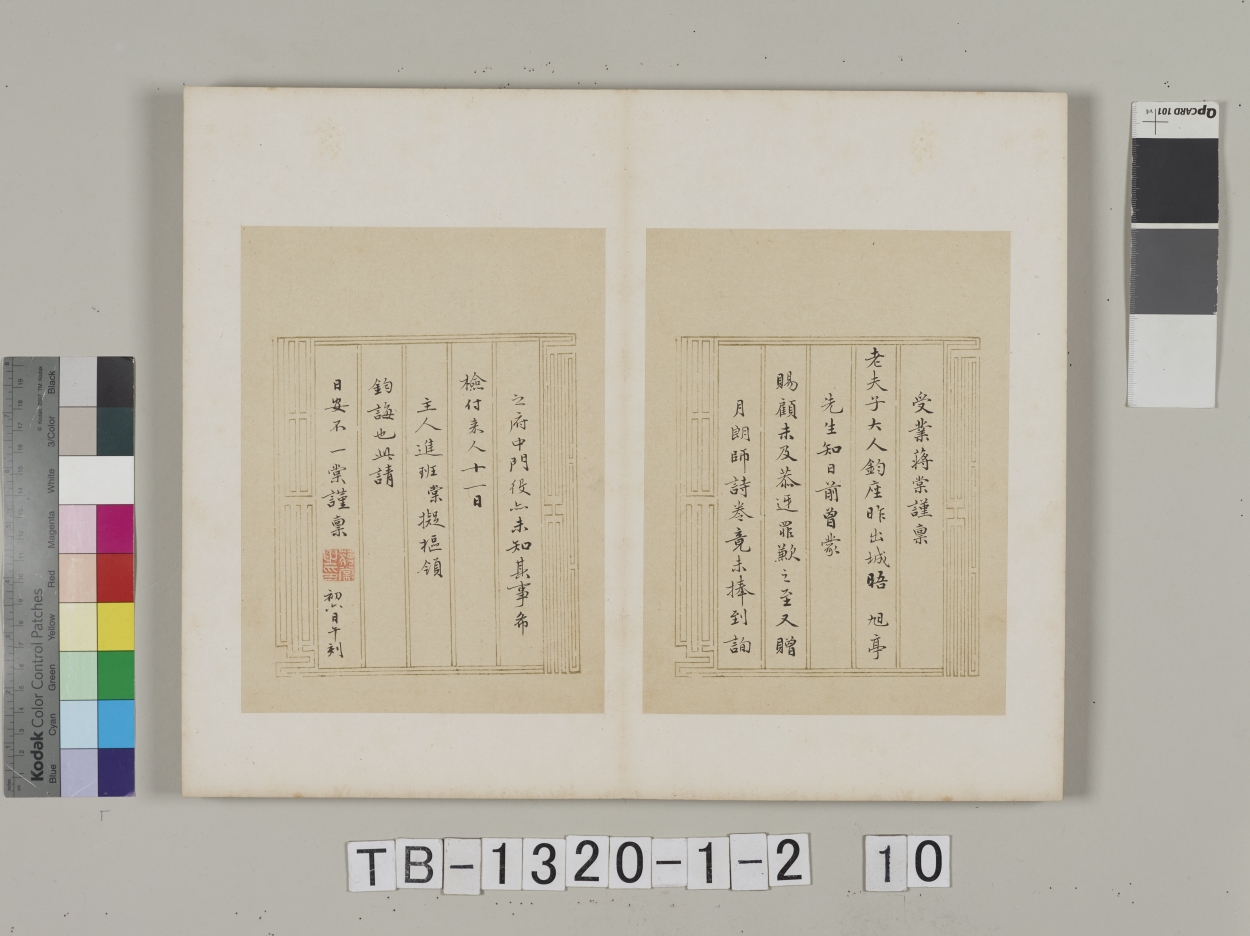 受業蔣棠謹稟
老夫子大人鈞座昨出城晤 旭亭
先生知日前曾蒙
賜顧未及恭迓罪歉之至又贈
月朗師詩卷竟未捧到詢
之府中門役亦未知其事希
檢付來人十一日
主人進班棠擬摳領
鈞誨也此請
日安不一棠謹稟
初八日午刻
TB-1320-1-2 10
QPCARD 101
Kodak Color Control Patches
Blue Cyan Green Yellow Red Magenta White 3/Color Black